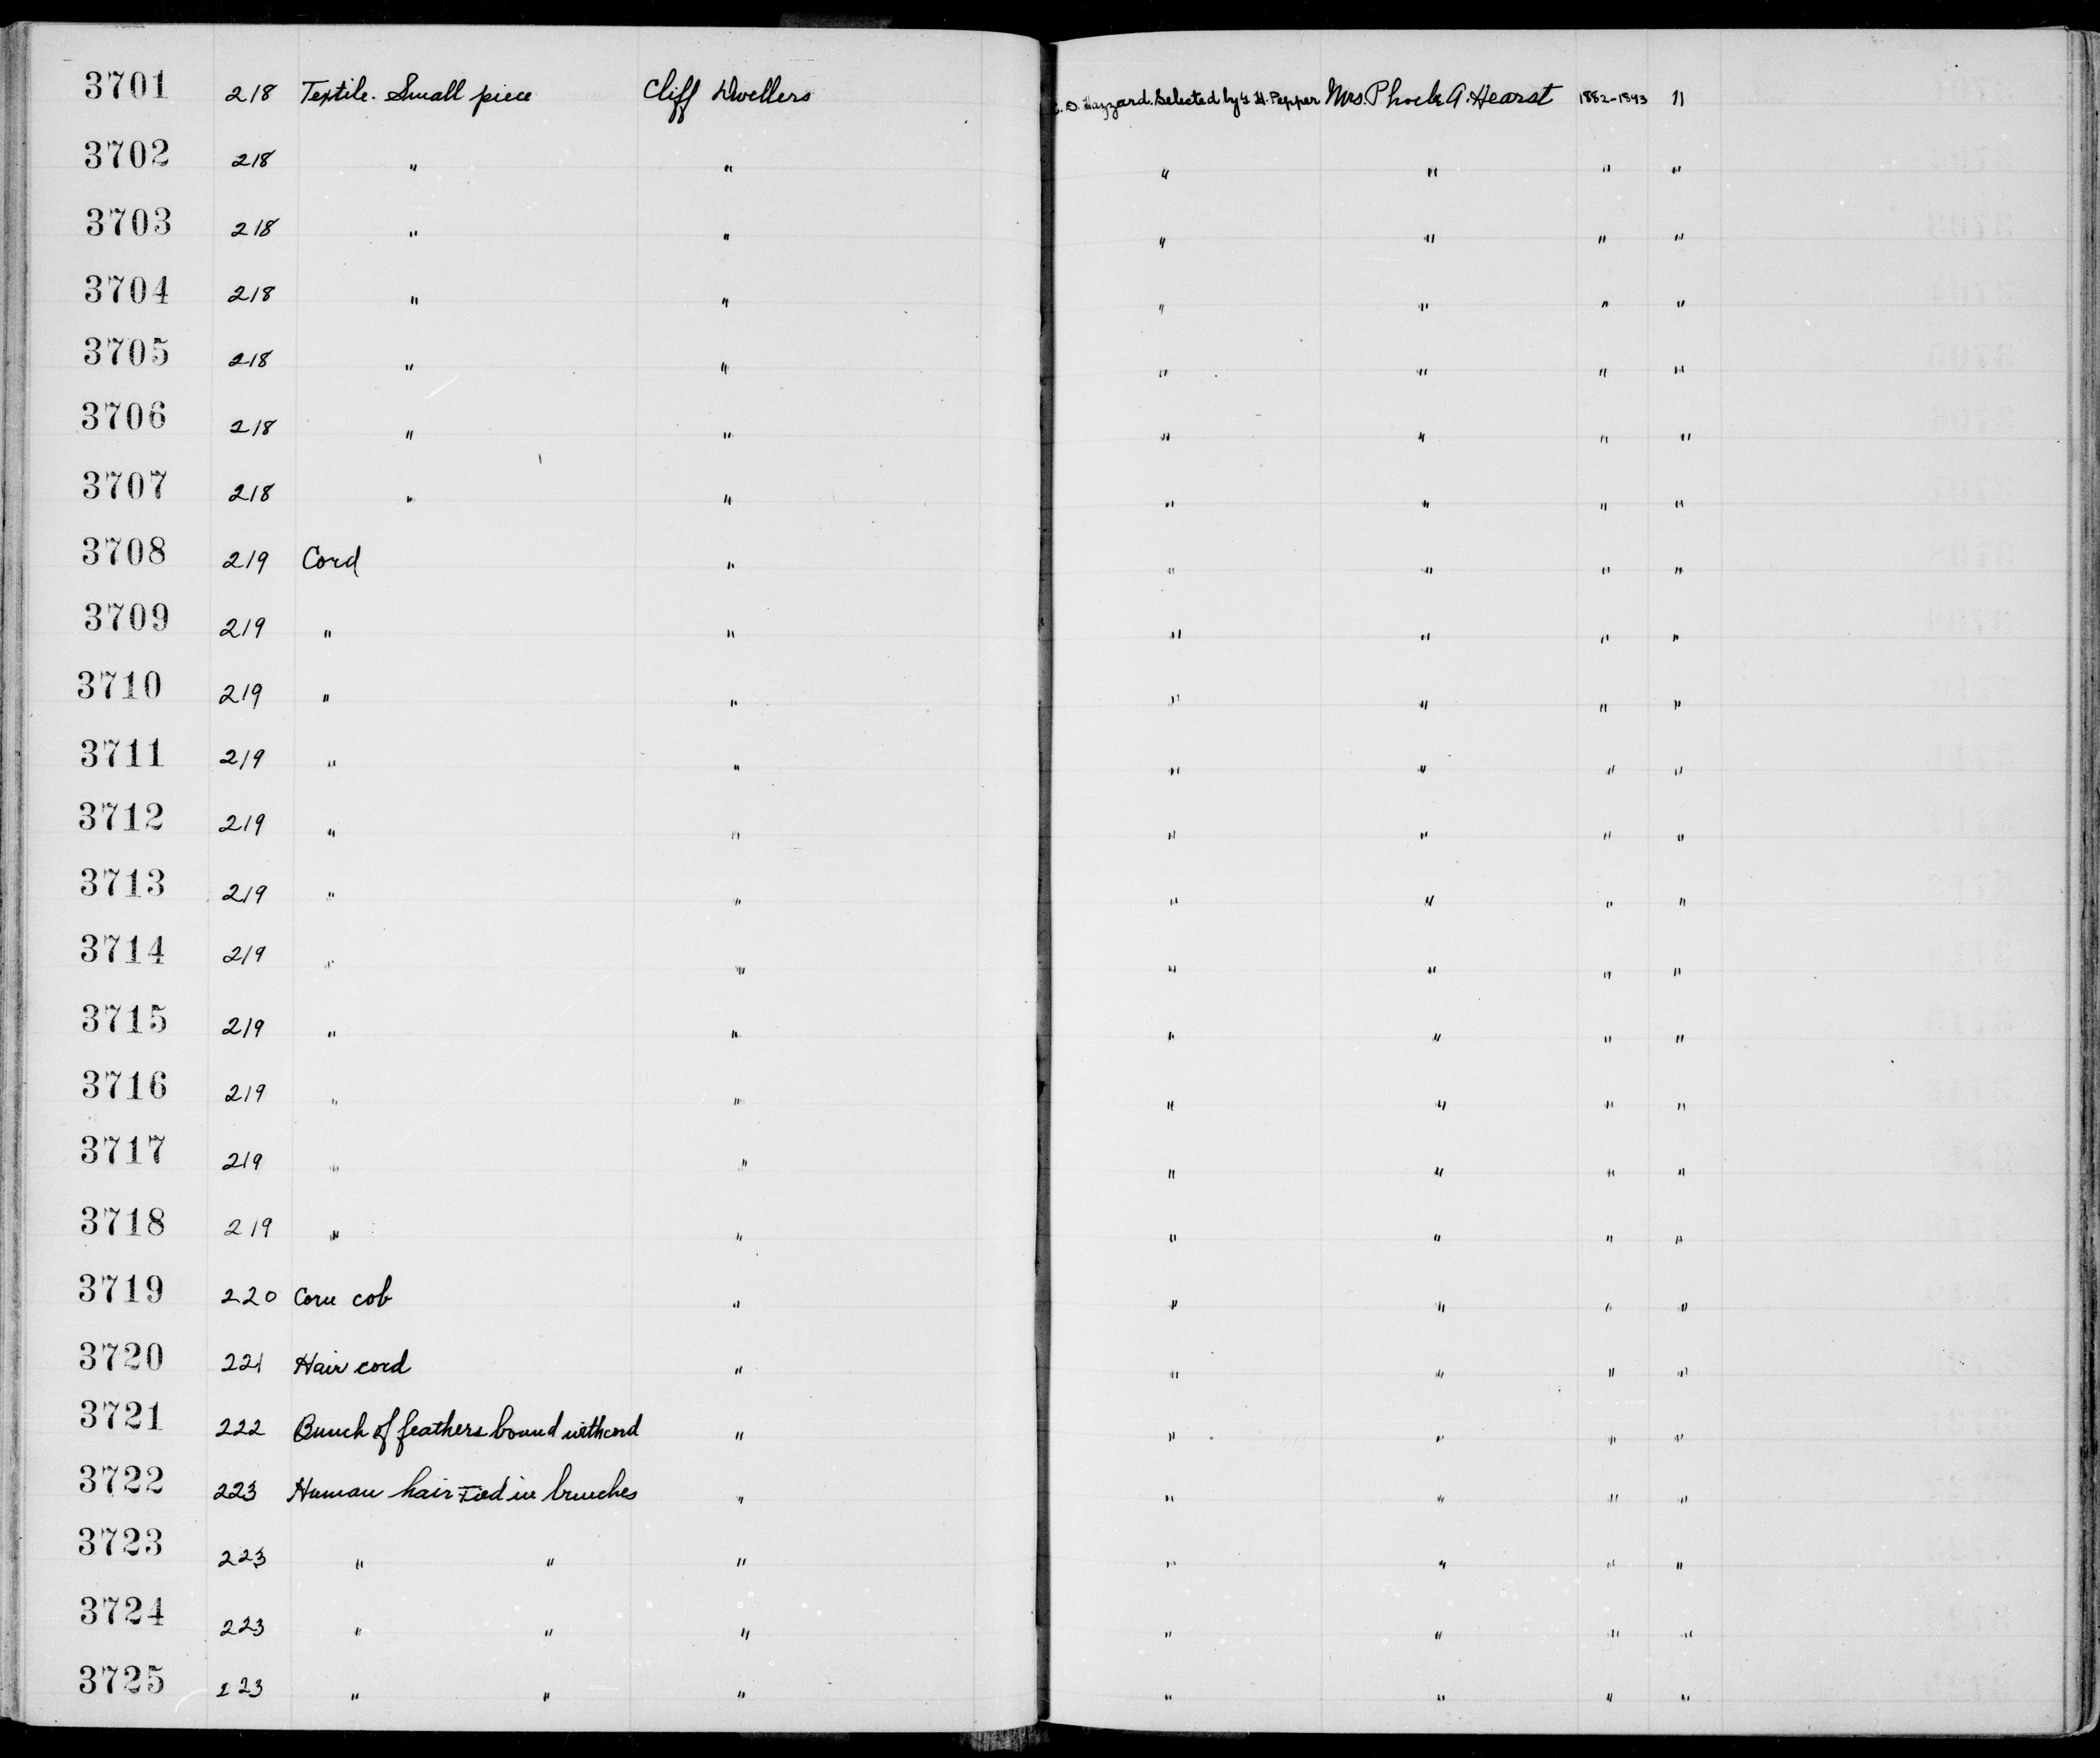 3701 218 Textile. Small piece Cliff Dwellers C. D. Hazzard. Selected by G. H. Pepper Mrs. Phoebe A. Hearst 1882-1893 11
3702 218 " " " " " "
3703 218 " " " " " "
3704 218 " " " " " "
3705 218 " " " " " "
3706 218 " " " " " "
3707 218 " " " " " "
3708 219 Cord " " " " "
3709 219 " " " " " "
3710 219 " " " " " "
3711 219 " " " " " "
3712 219 " " " " " "
3713 219 " " " " " "
3714 219 " " " " " "
3715 219 " " " " " "
3716 219 " " " " " "
3717 219 " " " " " "
3718 219 " " " " " "
3719 220 Corn cob " " " " "
3720 221 Hair cord " " " " "
3721 222 Bunch of feathers bound with cord " " " " "
3722 223 Human hair Tied in bunches " " " " "
3723 223 " " " " " " "
3724 223 " " " " " " "
3725 223 " " " " " " "